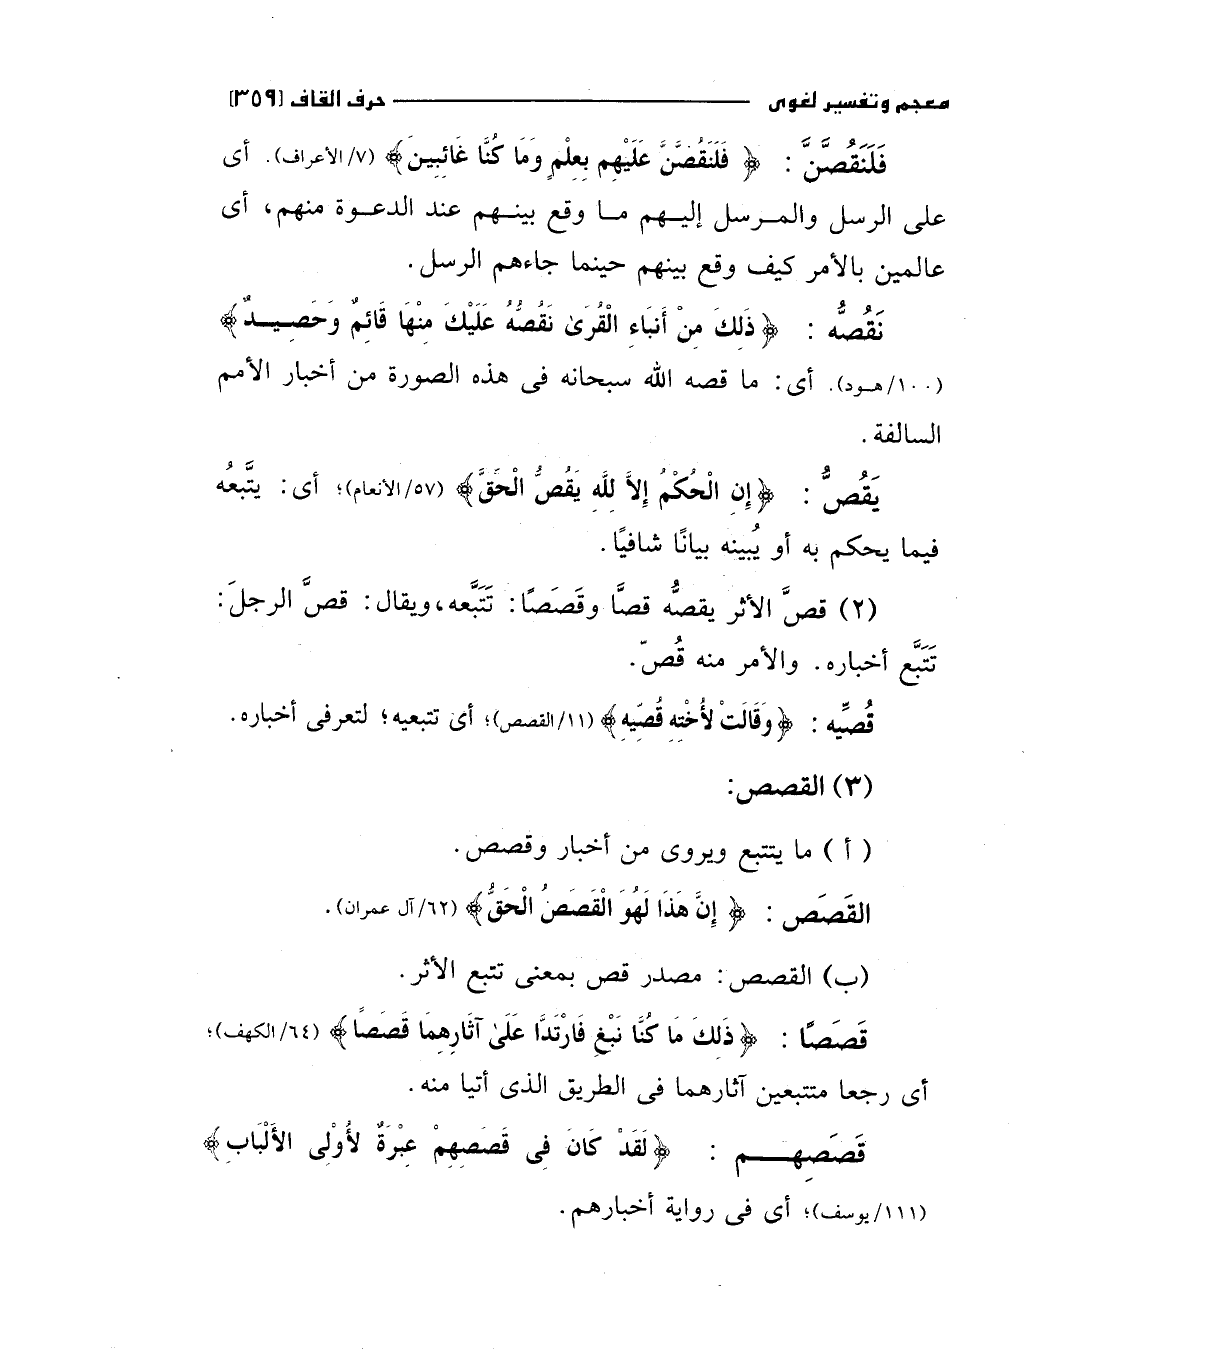 معجم وتفسير لغوى حرف القاف [٣٥٩]
فَلَنَقُصَّنَّ : ﴿ فَلَنَقُصَّنَّ عَلَيْهِم بِعِلْمٍ وَمَا كُنَّا غَائِبِينَ ﴾ (٧/الأعراف). أى
على الرسل والمـرسل إليـهم مـا وقع بينـهم عند الدعـوة منهم، أى
عالمين بالأمر كيف وقع بينهم حينما جاءهم الرسل.
نَقُصُّه : ﴿ذَلِكَ مِنْ أَنبَاءِ الْقُرَىٰ نَقُصُّهُ عَلَيْكَ مِنْهَا قَائِمٌ وَحَصِيـدٌ﴾
(١٠٠/هـود). أى: ما قصه الله سبحانه فى هذه الصورة من أخبار الأمم
السالفة.
يَقُصُّ : ﴿إِنِ الْحُكْمُ إِلاَّ لِلَّهِ يَقُصُّ الْحَقَّ﴾ (٥٧/الأنعام)؛ أى: يتَّبعُه
فيما يحكم به أو يُبينه بيانًا شافيًا.
(٢) قصَّ الأثر يقصُّه قصًّا وقَصَصًا: تَتَبَّعه، ويقال: قصَّ الرجلَ:
تَتَبَّع أخباره. والأمر منه قُصّ.
قُصِّيه : ﴿وَقَالَتْ لأُخْتِهِ قُصِّيهِ﴾ (١١/القصص)؛ أى تتبعيه؛ لتعرفى أخباره.
(٣) القصص:
( أ ) ما يتتبع ويروى من أخبار وقصص.
القَصَص : ﴿ إِنَّ هَذَا لَهُوَ الْقَصَصُ الْحَقُّ﴾ (٦٢/آل عمران).
(ب) القصص: مصدر قص بمعنى تتبع الأثر.
قَصَصًا : ﴿ذَلِكَ مَا كُنَّا نَبْغِ فَارْتَدَّا عَلَىٰ آثَارِهِمَا قَصَصًا﴾ (٦٤/الكهف)؛
أى رجعا متتبعين آثارهما فى الطريق الذى أتيا منه.
قَصَصِهـم : ﴿لَقَدْ كَانَ فِى قَصَصِهِمْ عِبْرَةٌ لأُوْلِى الأَلْبَابِ﴾
(١١١/يوسف)؛ أى فى رواية أخبارهم.